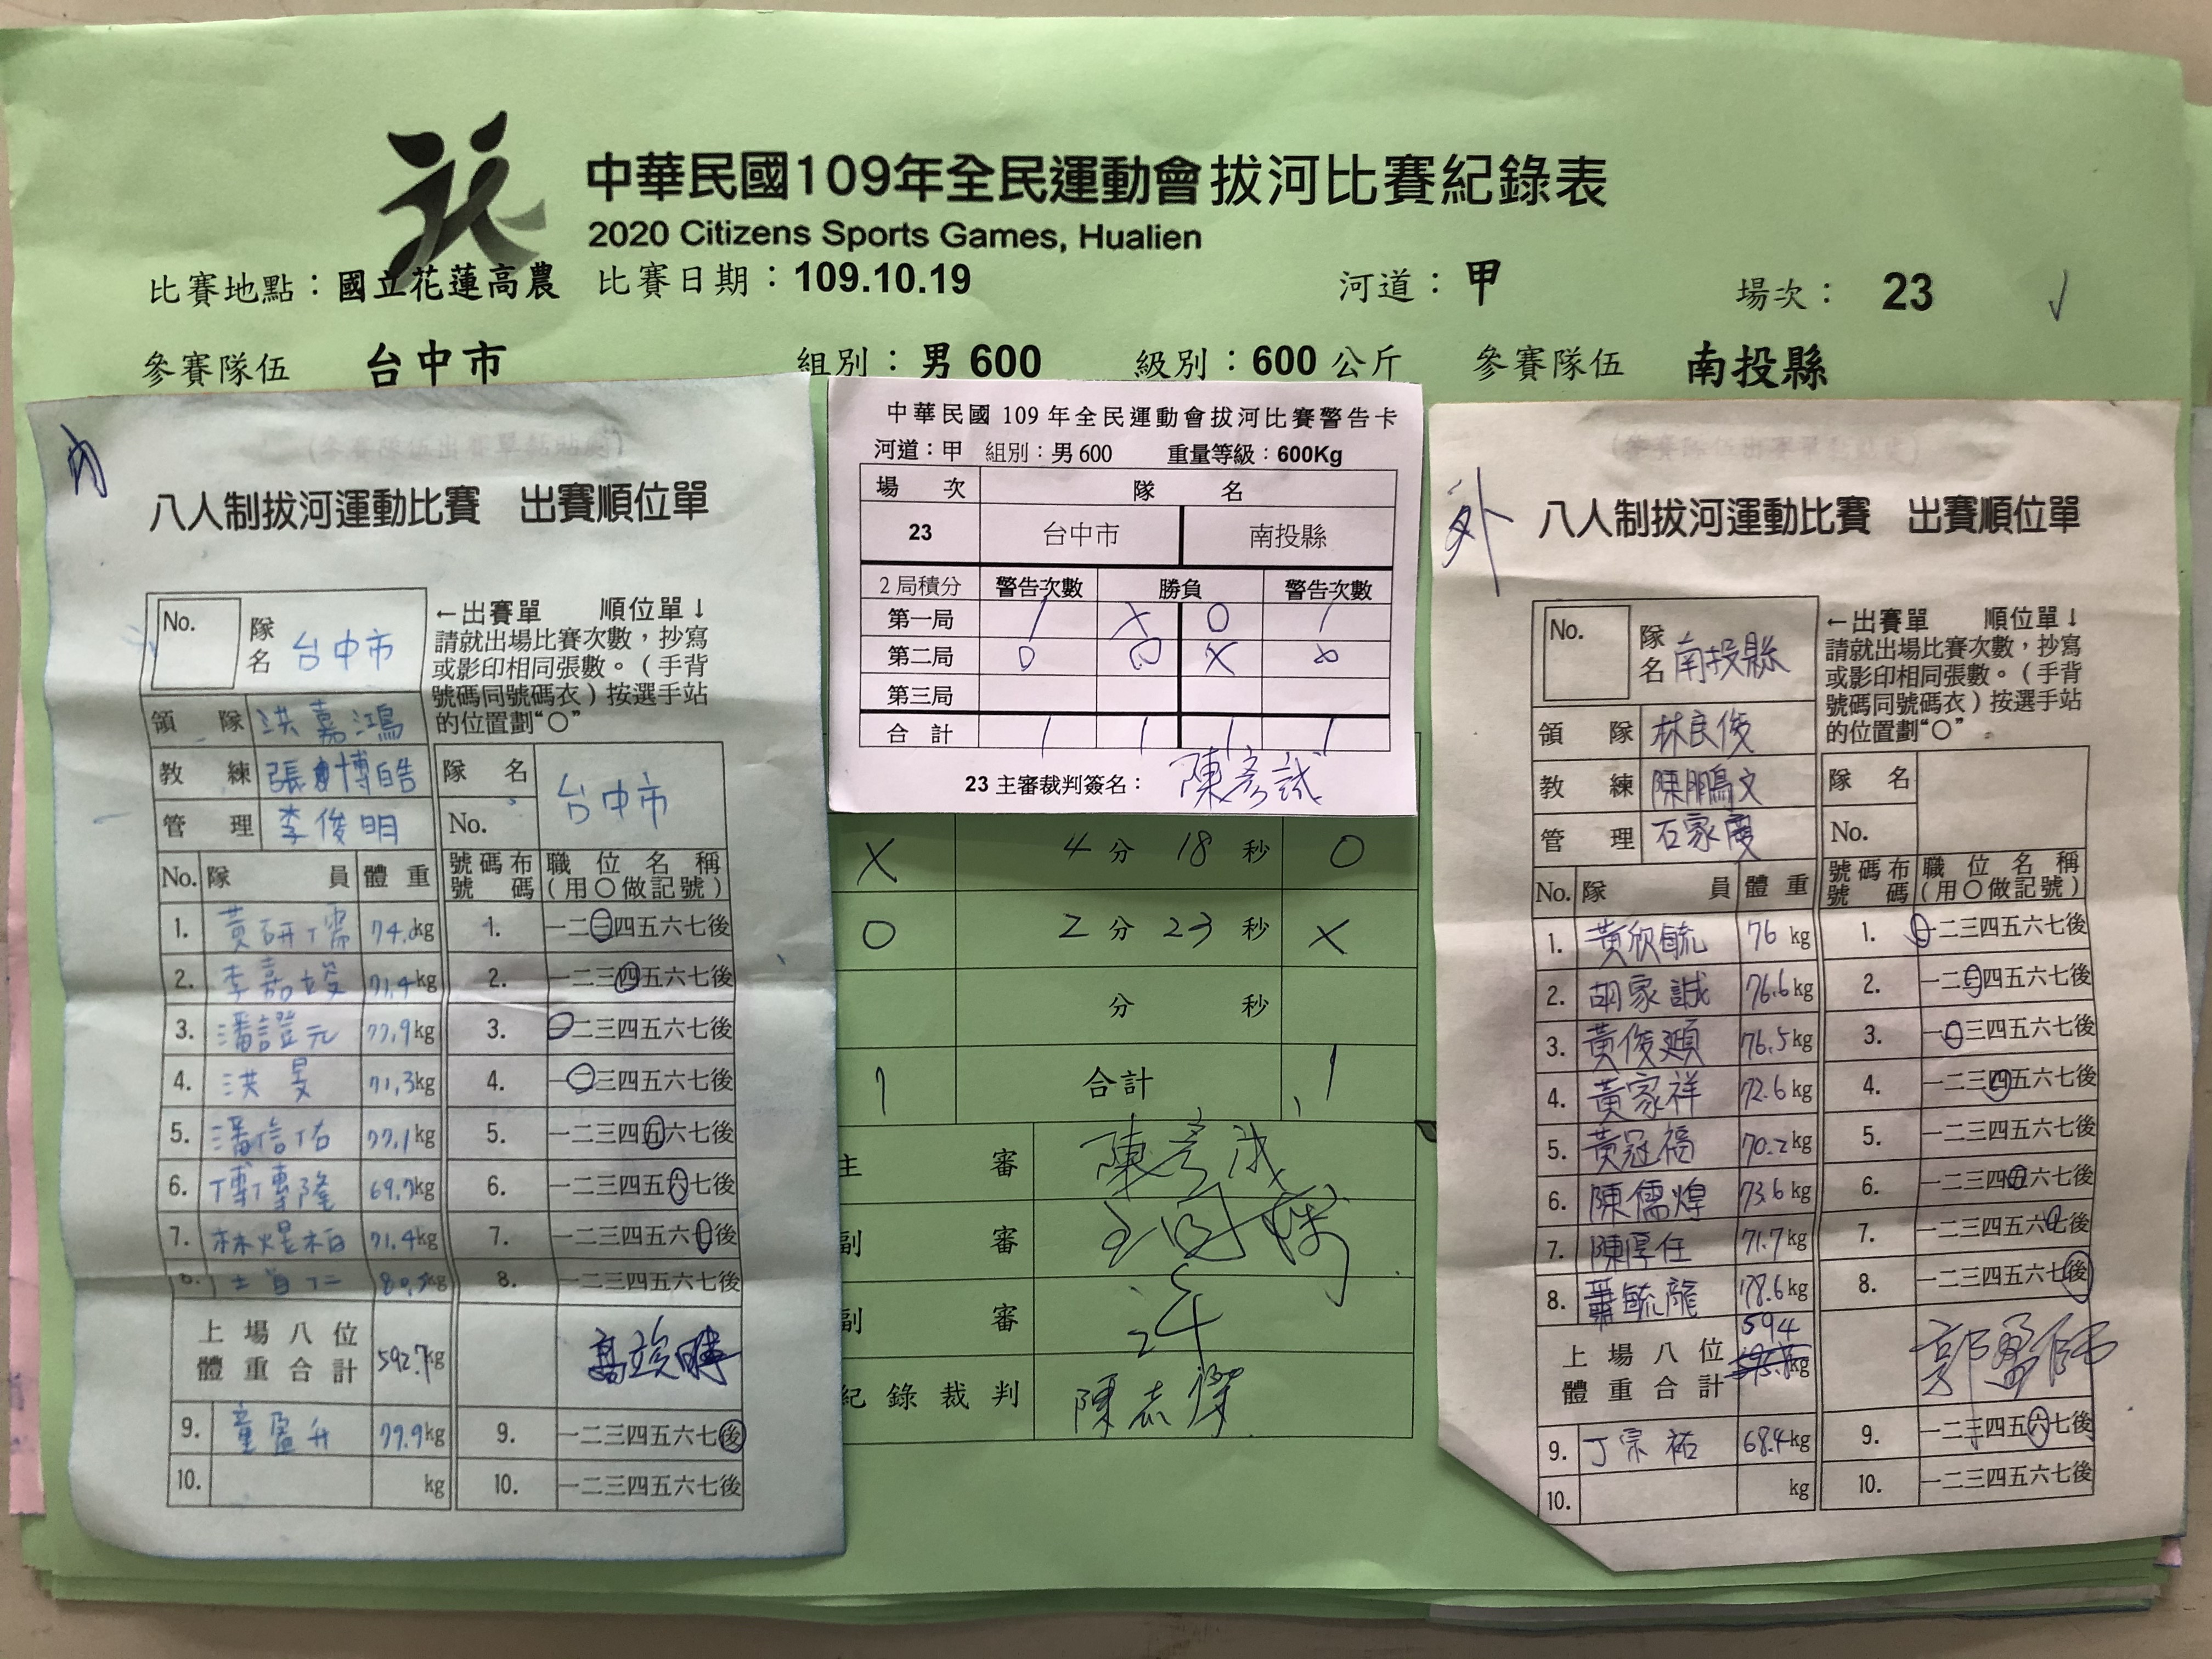 中華民國109年全民運動會拔河比賽紀錄表
2020 Citizens Sports Games, Hualien
比賽地點：國立花蓮高農 比賽日期：109.10.19 河道：甲 場次： 23
參賽隊伍 台中市 組別：男600 級別：600公斤 參賽隊伍 南投縣
內
(參賽隊伍出賽單黏貼處)
八人制拔河運動比賽 出賽順位單
No. 隊名 台中市
←出賽單 順位單↓
請就出場比賽次數，抄寫
或影印相同張數。（手背
號碼同號碼衣）按選手站
的位置劃“〇”
領隊 洪嘉鴻
教練 張博皓
管理 李俊明
隊名 台中市
No.
No. 隊員 體重 號碼布號碼 職位名稱（用〇做記號）
1. 黃研儒 74.0kg 1. 一二三四五六七後
2. 李嘉竣 71.4kg 2. 一二三四五六七後
3. 潘證元 77.9kg 3. 一二三四五六七後
4. 洪旻 71.3kg 4. 一二三四五六七後
5. 潘信佑 77.1kg 5. 一二三四五六七後
6. 傅傳隆 69.7kg 6. 一二三四五六七後
7. 林煜栢 71.4kg 7. 一二三四五六七後
8. kg 8. 一二三四五六七後
上場八位體重合計 592.7kg
9. 童盈升 77.9kg 9. 一二三四五六七後
10. kg 10. 一二三四五六七後
中華民國 109 年全民運動會拔河比賽警告卡
河道：甲 組別：男600 重量等級：600Kg
場次 隊名
23 台中市 南投縣
2局積分 警告次數 勝負 警告次數
第一局 1 X O 1
第二局 0 O X 0
第三局
合計 1 1 1 1
23 主審裁判簽名： 陳彥誠
X 4分18秒 O
O 2分23秒 X
分 秒
1 合計 1
主審 陳彥誠
副審
副審 許
紀錄裁判 陳志傑
外
(參賽隊伍出賽單黏貼處)
八人制拔河運動比賽 出賽順位單
No. 隊名 南投縣
←出賽單 順位單↓
請就出場比賽次數，抄寫
或影印相同張數。（手背
號碼同號碼衣）按選手站
的位置劃“〇”
領隊 林良俊
教練 陳鵬文
管理 石家慶
隊名
No.
No. 隊員 體重 號碼布號碼 職位名稱（用〇做記號）
1. 黃欣毓 76 kg 1. 一二三四五六七後
2. 胡家誠 76.6kg 2. 一二三四五六七後
3. 黃俊頲 76.5kg 3. 一二三四五六七後
4. 黃家祥 72.6kg 4. 一二三四五六七後
5. 黃冠福 70.2kg 5. 一二三四五六七後
6. 陳儒煌 73.6kg 6. 一二三四五六七後
7. 陳厚任 71.7kg 7. 一二三四五六七後
8. 蕭毓龍 78.6kg 8. 一二三四五六七後
上場八位體重合計 594 kg
9. 丁宗祐 68.4kg 9. 一二三四五六七後
10. kg 10. 一二三四五六七後